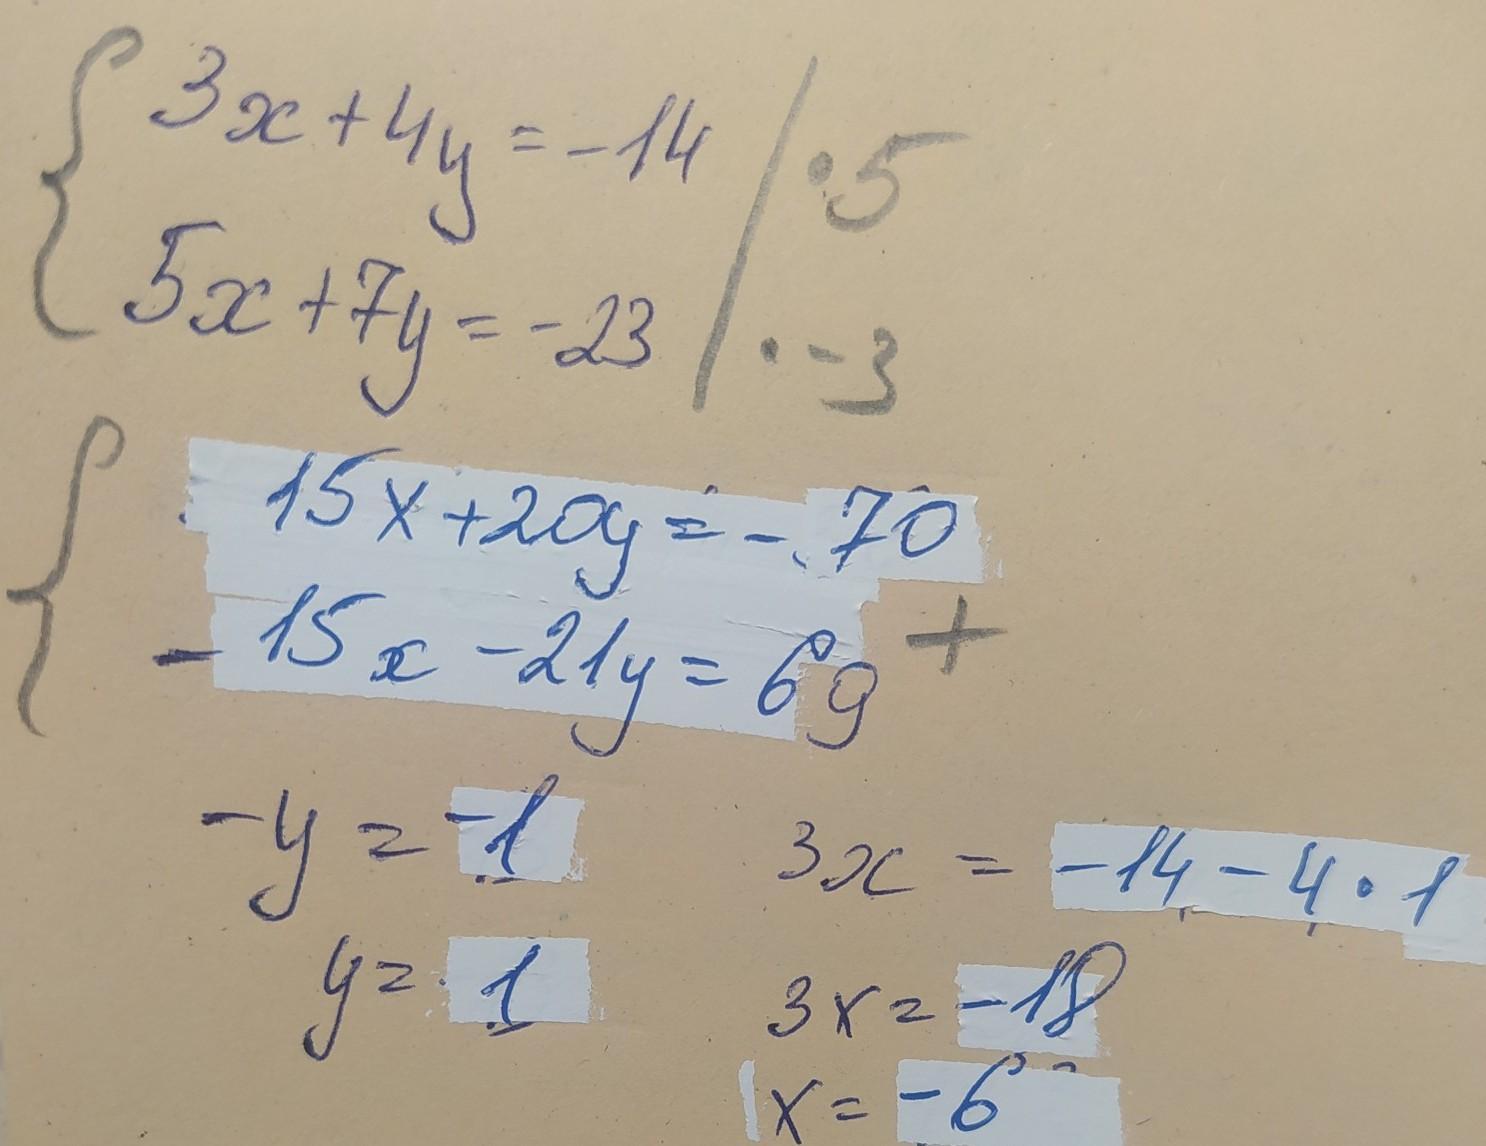 3x+4y=-14 | ·5
5x+7y=-23 | ·-3
15x+20y=-70
-15x-21y=69 +
-y=-1
y=1
3x=-14-4·1
3x=-18
x=-6